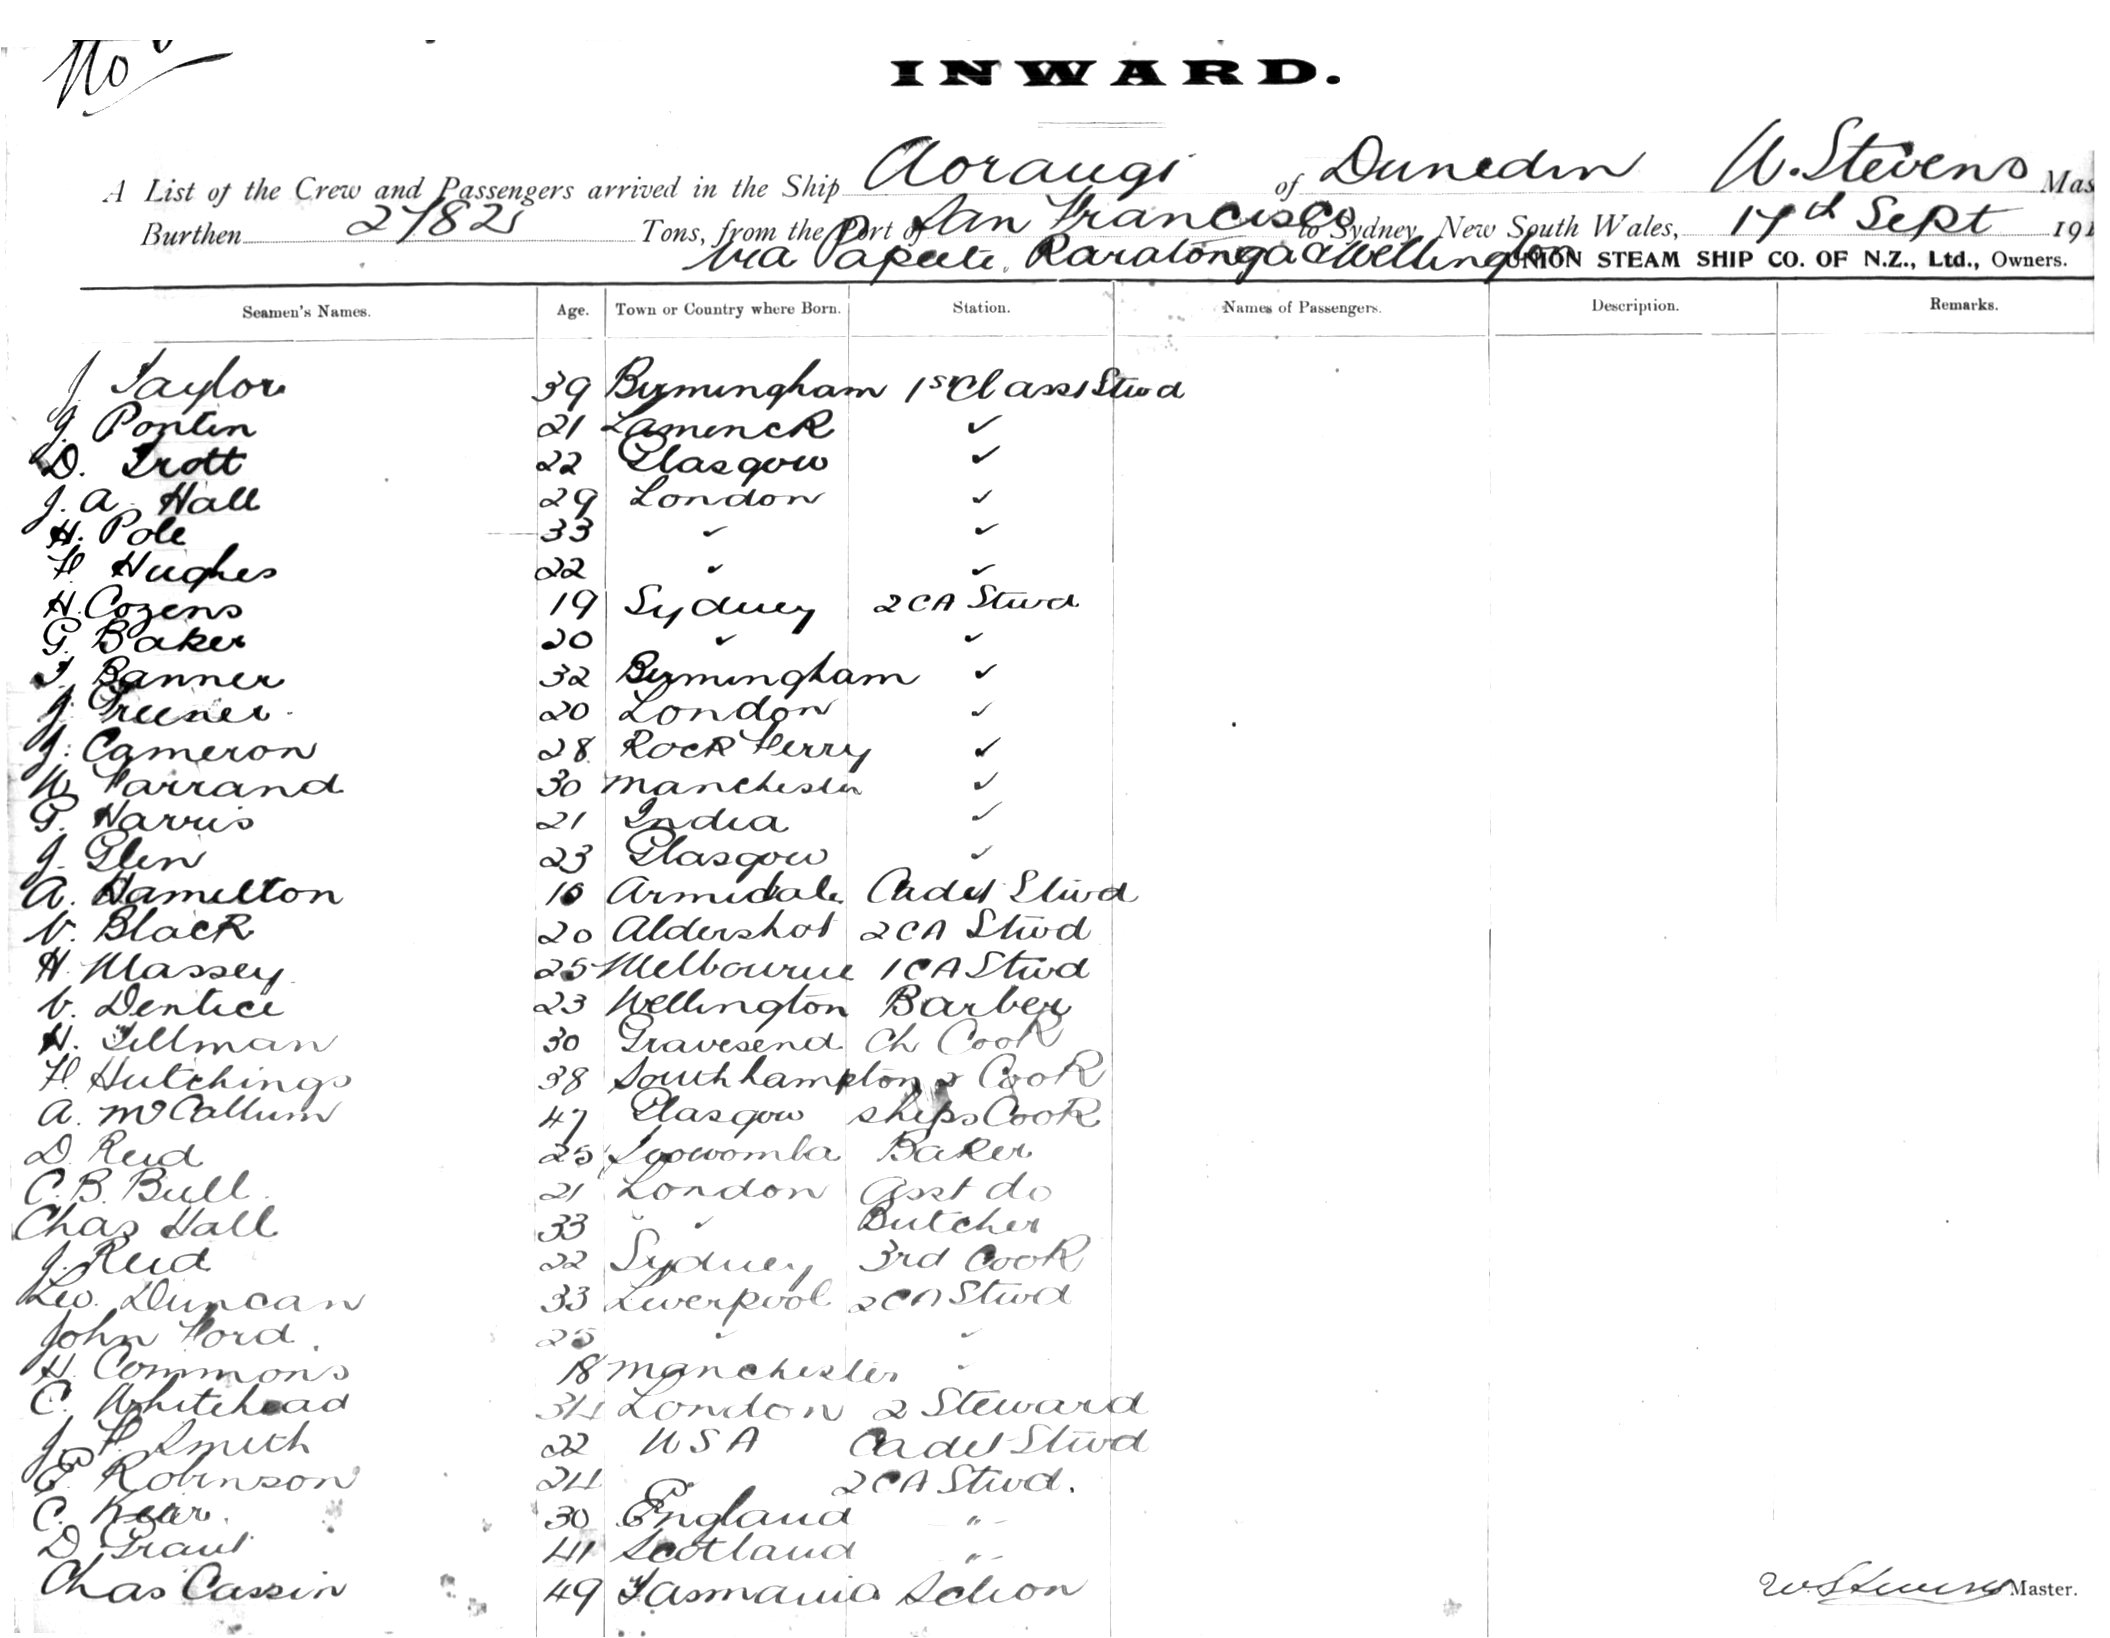 INWARD.
A List of the Crew and Passengers arrived in the Ship Aorangi of Dunedin W. Stevens Mas
Burthen 2782 Tons, from the Port of San Francisco to Sydney, New South Wales, 17th Sept 191
Via Papeete, Raratonga & Wellington UNION STEAM SHIP CO. OF N.Z., Ltd., Owners.
Seamen's Names. Age. Town or Country where Born. Station. Names of Passengers. Description. Remarks.
J Taylor 39 Birmingham 1st Class Stwd
J. Pontin 21 ✓
D. Trott 22 Glasgow ✓
J. A. Hall 29 London ✓
H. Pole 33 ✓ ✓
F Hughes 22 ✓ ✓
H. Cozens 19 Sydney 2 CA Stwd
G. Baker 20 ✓ ✓
T. Banner 32 Birmingham ✓
J. Greener 20 London ✓
J. Cameron 28 Rock Ferry ✓
W Farrand 30 Manchester ✓
G. Harris 21 India ✓
J. Glen 23 Glasgow ✓
A. Hamilton Armidale Cadet Stwd
V. Black 20 Aldershot 2 CA Stwd
H. Massey 25 Melbourne 1 CA Stwd
V. Dentice 23 Wellington Barber
H. Tillman 30 Gravesend Ch Cook
F. Hutchings 38 Southhampton 2 Cook
A. McCallum 47 Glasgow Ships Cook
D. Reid 25 Toowomba Baker
C. B. Bull 21 London Asst do
Chas Hall 33 ✓ Butcher
J. Reid 22 Sydney 3rd Cook
Leo. Duncan 33 Liverpool 2 CA Stwd
John Ford 25 ✓ ✓
H. Commons 18 Manchester ✓
C. Whitehead 34 London 2 Steward
J. F. Smith 22 USA Cadet Stwd
E. Robinson 24 2 CA Stwd.
C. Kerr. 30 England "
D Grant 41 Scotland "
Chas Cassin 49 Tasmania
W. Stevens Master.